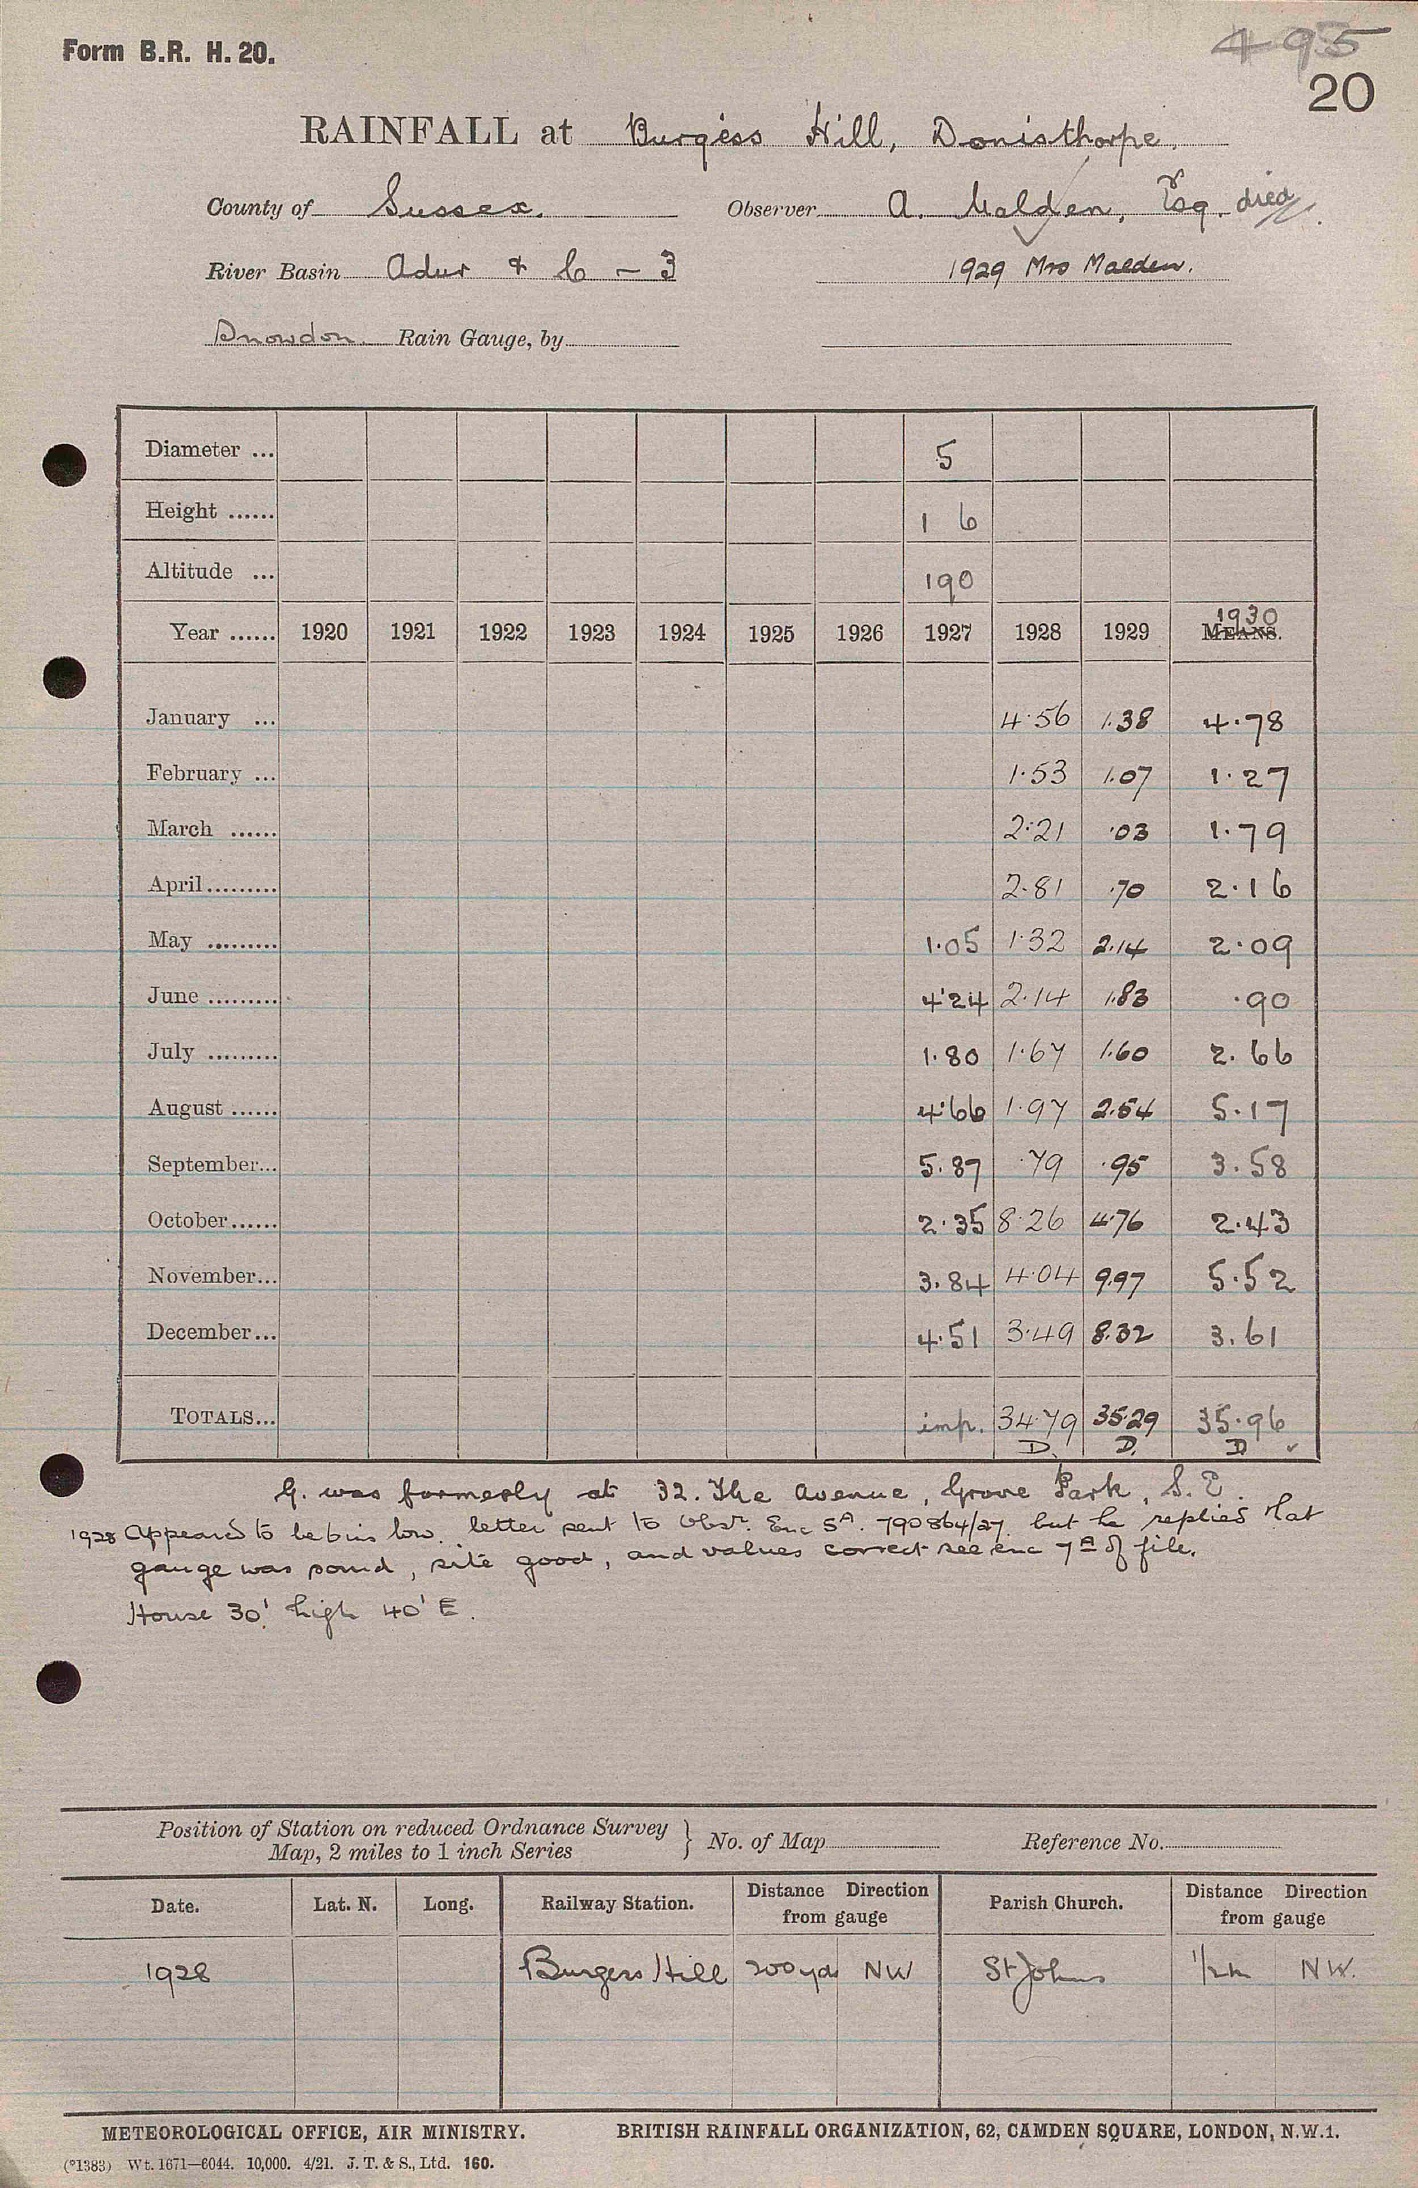 Form B.R. H. 20.
495
20
RAINFALL at Burgess Hill, Donisthorpe.
County of Sussex. Observer A. Malden, Esq. died
River Basin Adur & C - 3 1929 Mrs Malden.
Snowdon. Rain Gauge, by
Diameter ... 5
Height ...... 1 6
Altitude ... 190
Year ...... 1920 1921 1922 1923 1924 1925 1926 1927 1928 1929 MEANS. 1930
January ... 4.56 1.38 4.78
February ... 1.53 1.07 1.27
March ...... 2.21 .03 1.79
April......... 2.81 .70 2.16
May ......... 1.05 1.32 2.14 2.09
June ......... 4.24 2.14 1.83 .90
July ......... 1.80 1.67 1.60 2.66
August ...... 4.66 1.97 2.54 5.17
September... 5.87 .79 .95 3.58
October...... 2.35 8.26 4.76 2.43
November... 3.84 4.04 9.97 5.52
December... 4.51 3.49 8.32 3.61
TOTALS... imp. 34.79 35.29 35.96
D. D. D ✓
G. was formerly at 32. The Avenue, Grove Park, S.E.
1928 Appeared to be 6 ins low. letter sent to Obsr. Enc 5A. 790864/27 but he replied that
gauge was sound, site good, and values correct see enc 7A of file.
House 30' high 40' E.
Position of Station on reduced Ordnance Survey
Map, 2 miles to 1 inch Series } No. of Map Reference No.
Date. Lat. N. Long. Railway Station. Distance Direction from gauge Parish Church. Distance Direction from gauge
1928 Burgess Hill 200 yds NW St Johns 1/2 m NW.
METEOROLOGICAL OFFICE, AIR MINISTRY. BRITISH RAINFALL ORGANIZATION, 62, CAMDEN SQUARE, LONDON, N.W.1.
(*1383) Wt. 1671—6044. 10,000. 4/21. J. T. & S., Ltd. 160.